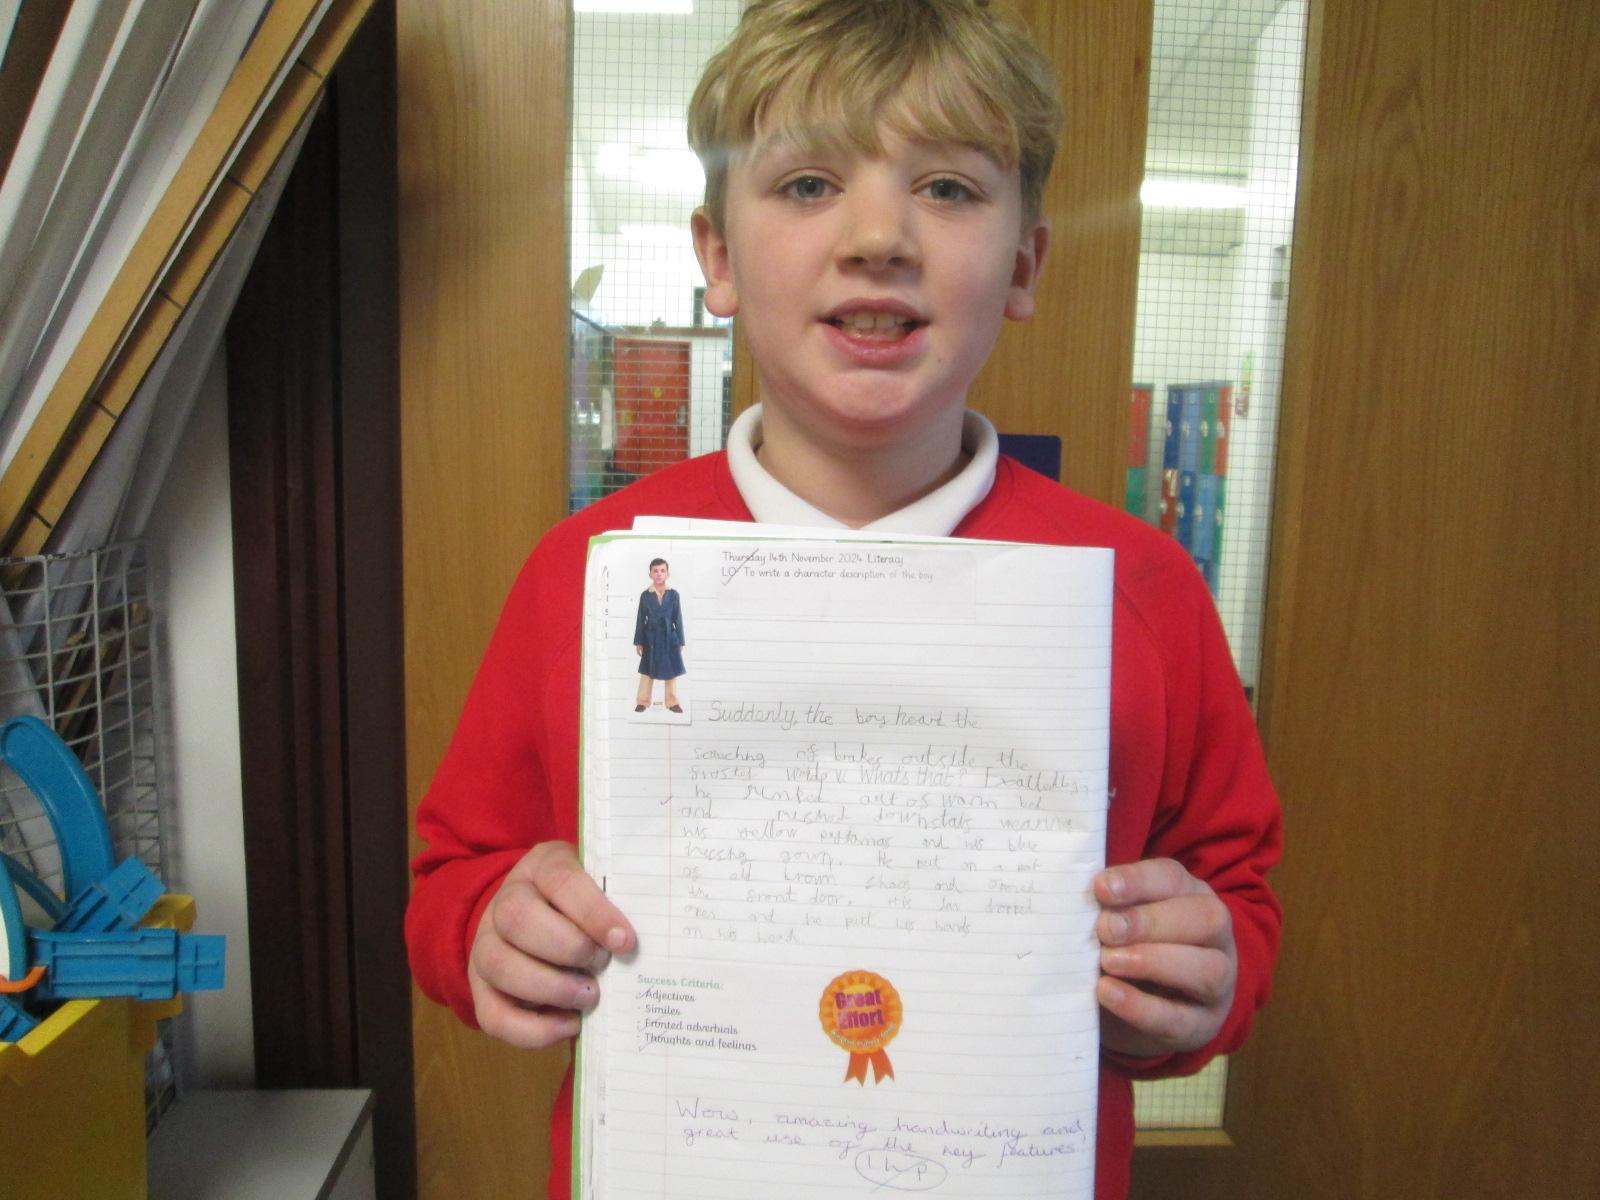 Thursday 14th November 2024 Literacy
LO: To write a character description of the boy
Suddenly, the boy heart the
of brakes outside the
What's that?
he out of warm bed
and rushed downstairs wearing
his yellow and his blue
gown. He put on a
of old brown shoes and opened
the front door. His
open and he put his hands
on his head.
Success Criteria:
- Adjectives
- Similes
- Fronted adverbials
- Thoughts and feelings
Great
Effort
Wow, amazing handwriting and
great use of the key features!
1hp